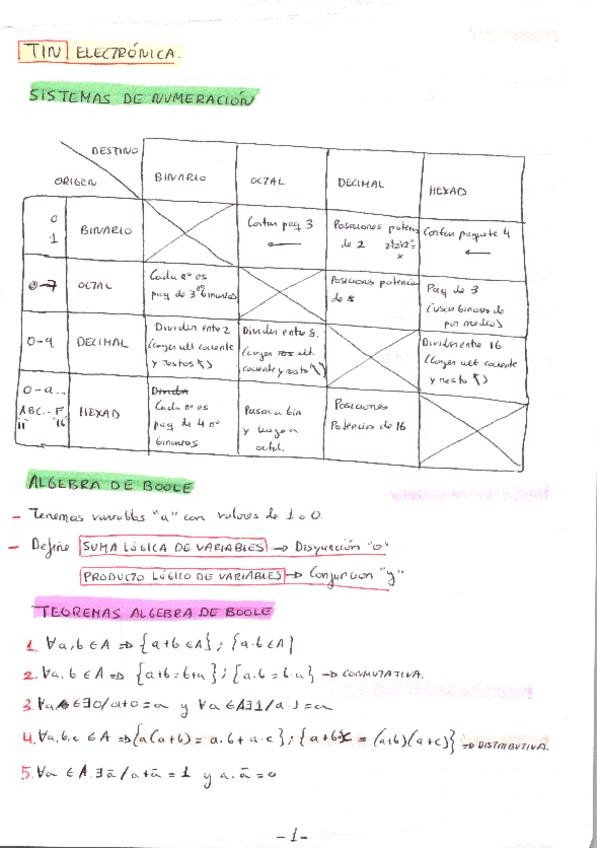 TIN ELECTRÓNICA.
SISTEMAS DE NUMERACIÓN
DESTINO
ORIGEN
BINARIO
OCTAL
DECIMAL
HEXAD
0
1
BINARIO
Cortar paq 3
←
Posiciones potencia
de 2
Cortar paquete 4
←
0-7
OCTAL
Cada nº es
paq de 3 binarios
Posiciones potencia
de 8
Paq de 3
(usar binario de
por medio)
0-9
DECIMAL
Dividir entre 2
(coger ult cociente
y restos ↖)
Dividir entre 8.
(coger ult.
cociente y resto ↖)
Dividir entre 16
(coger ult cociente
y resto ↖)
0-9...
ABC...F
11 16
HEXAD
Dividir
Cada nº es
paq de 4 nº
binarios
Pasar a bin
y luego a
octal.
Posiciones
Potencia de 16
ALGEBRA DE BOOLE
- Tenemos variables "a" con valores de 1 o 0.
- Define SUMA LÓGICA DE VARIABLES → Disyunción "o"
PRODUCTO LÓGICO DE VARIABLES → Conjuncion "y"
TEOREMAS ALGEBRA DE BOOLE
1. ∀a,b ∈ A ⇒ {a+b ∈ A} ; {a·b ∈ A}
2. ∀a,b ∈ A ⇒ {a+b = b+a} ; {a·b = b·a} → CONMUTATIVA.
3. ∀a ∈ ∃0/a+0=a y ∀a ∈ A ∃1/a·1=a
4. ∀a,b,c ∈ A ⇒ {a(a+b) = a·b + a·c} ; {a+b·c = (a+b)(a+c)} ⇒ DISTRIBUTIVA.
5. ∀a ∈ A. ∃ā/a+ā = 1 y a·ā = 0
-1-